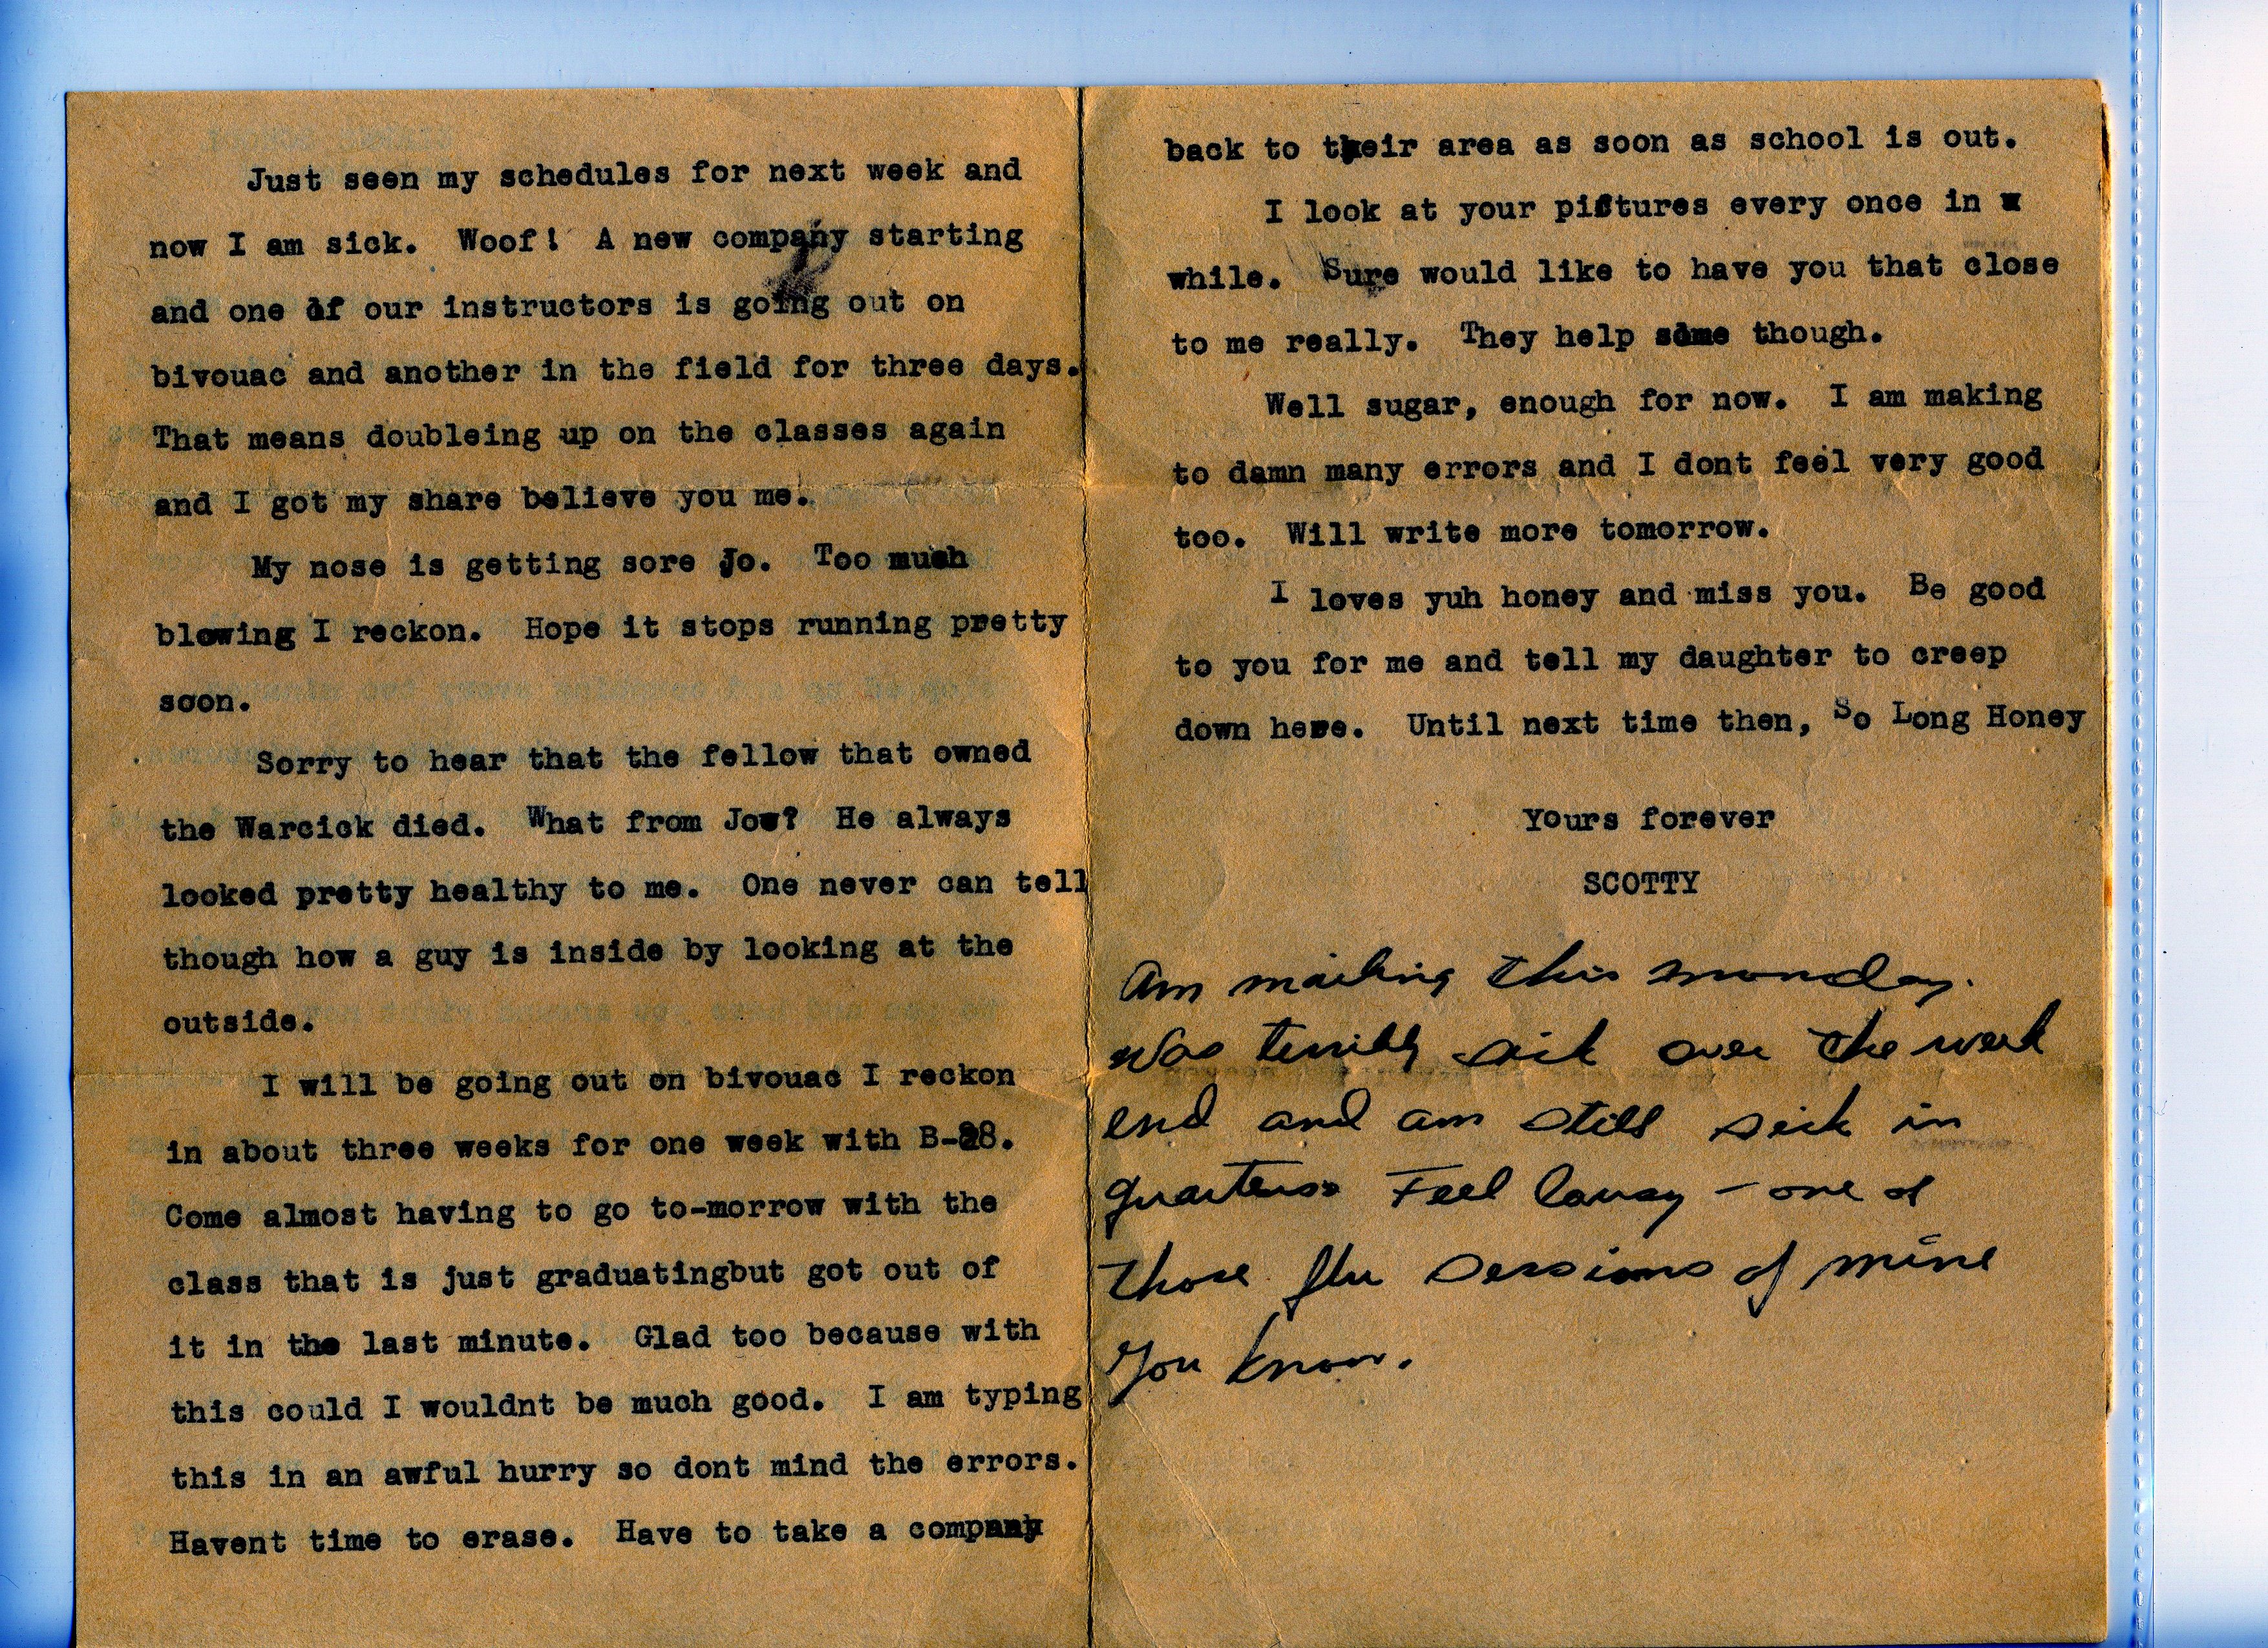 Just seen my schedules for next week and
now I am sick. Woof! A new company starting
and one of our instructors is going out on
bivouac and another in the field for three days.
That means doubleing up on the classes again
and I got my share believe you me.
My nose is getting sore Jo. Too much
blowing I reckon. Hope it stops running pretty
soon.
Sorry to hear that the fellow that owned
the Warcick died. What from Jow? He always
looked pretty healthy to me. One never can tell
though how a guy is inside by looking at the
outside.
I will be going out on bivouac I reckon
in about three weeks for one week with B-28.
Come almost having to go to-morrow with the
class that is just graduatingbut got out of
it in the last minute. Glad too because with
this could I wouldnt be much good. I am typing
this in an awful hurry so dont mind the errors.
Havent time to erase. Have to take a company
back to their area as soon as school is out.
I look at your pictures every once in
while. Sure would like to have you that close
to me really. They help some though.
Well sugar, enough for now. I am making
to damn many errors and I dont feel very good
too. Will write more tomorrow.
I loves yuh honey and miss you. Be good
to you for me and tell my daughter to creep
down here. Until next time then, So Long Honey
Yours forever
SCOTTY
Am mailing this monday.
Was terribly sick over the week
end and am still sick in
quarters. Feel lousy – one of
those flu sessions of mine
you know.